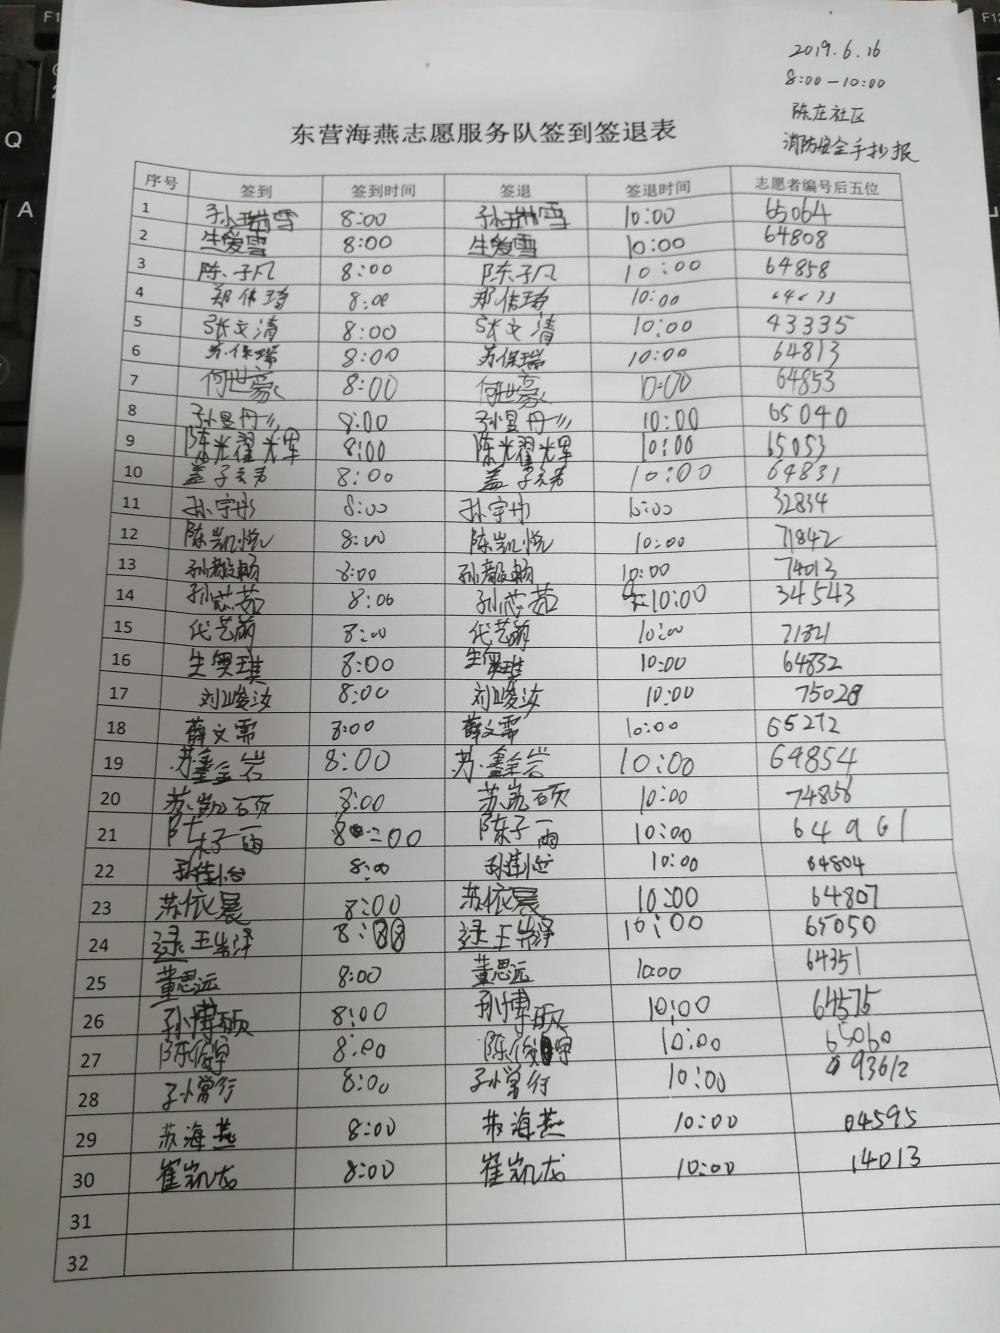 2019.6.16
8:00-10:00
陈庄社区
消防安全手抄报
东营海燕志愿服务队签到签退表
序号 签到 签到时间 签退 签退时间 志愿者编号后五位
1 孙瑞雪 8:00 孙瑞雪 10:00 65064
2 生爱雪 8:00 生爱雪 10:00 64808
3 陈子凡 8:00 陈子凡 10:00 64858
4 郑伟琦 8:00 郑伟琦 10:00
5 张文清 8:00 张文清 10:00 43335
6 苏保瑞 8:00 苏保瑞 10:00 64813
7 何世豪 8:00 何世豪 10:00 64853
8 孙昱彤 8:00 孙昱彤 10:00 65040
9 陈光耀 8:00 陈光耀 10:00 65053
10 盖子 8:00 盖子 10:00 64831
11 孙宇彤 8:00 孙宇彤 10:00 32834
12 陈凯悦 8:00 陈凯悦 10:00 71842
13 孙毅畅 8:00 孙毅畅 10:00 74013
14 孙芯茹 8:00 孙芯茹 10:00 34543
15 代艺萌 8:00 代艺萌 10:00 71821
16 生奥琪 8:00 生奥琪 10:00 64832
17 刘峻汝 8:00 刘峻汝 10:00 75028
18 薛文需 8:00 薛文需 10:00 65272
19 苏鑫岩 8:00 苏鑫岩 10:00 64854
20 苏凯硕 8:00 苏凯硕 10:00 74856
21 陈子雨 8:00 陈子雨 10:00 64961
22 孙佳怡 8:00 孙佳怡 10:00 64804
23 苏依晨 8:00 苏依晨 10:00 64807
24 逯玉 8:00 逯玉 10:00 65050
25 董思远 8:00 董思远 10:00 64351
26 孙博硕 8:00 孙博硕 10:00 64575
27 陈俊宇 8:00 陈俊宇 10:00 65060
28 孙常行 8:00 孙常行 10:00 93612
29 苏海燕 8:00 苏海燕 10:00 04595
30 崔凯龙 8:00 崔凯龙 10:00 14013
31
32
Q
A